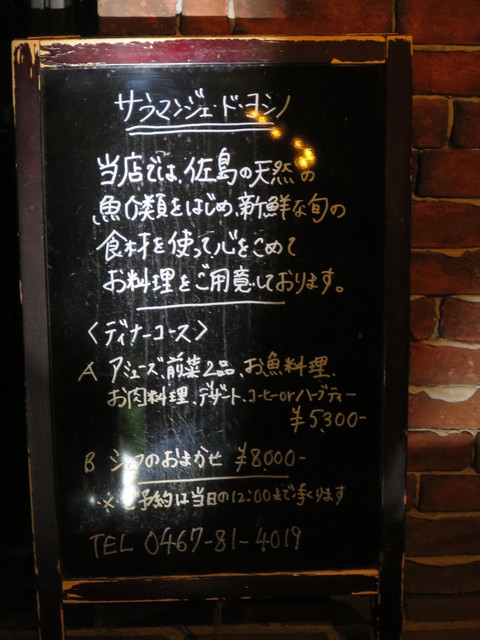 サラマンジェ・ド・ヨシノ
当店では、佐島の天然の
魚介類をはじめ、新鮮な旬の
食材を使って心をこめて
お料理をご用意しております。
〈ディナーコース〉
A アミューズ、前菜2品、お魚料理、
お肉料理、デザート、コーヒーorハーブティー
¥5,300-
B シェフのおまかせ ¥8000-
※ご予約は当日の12:00まで承ります
TEL 0467-81-4019